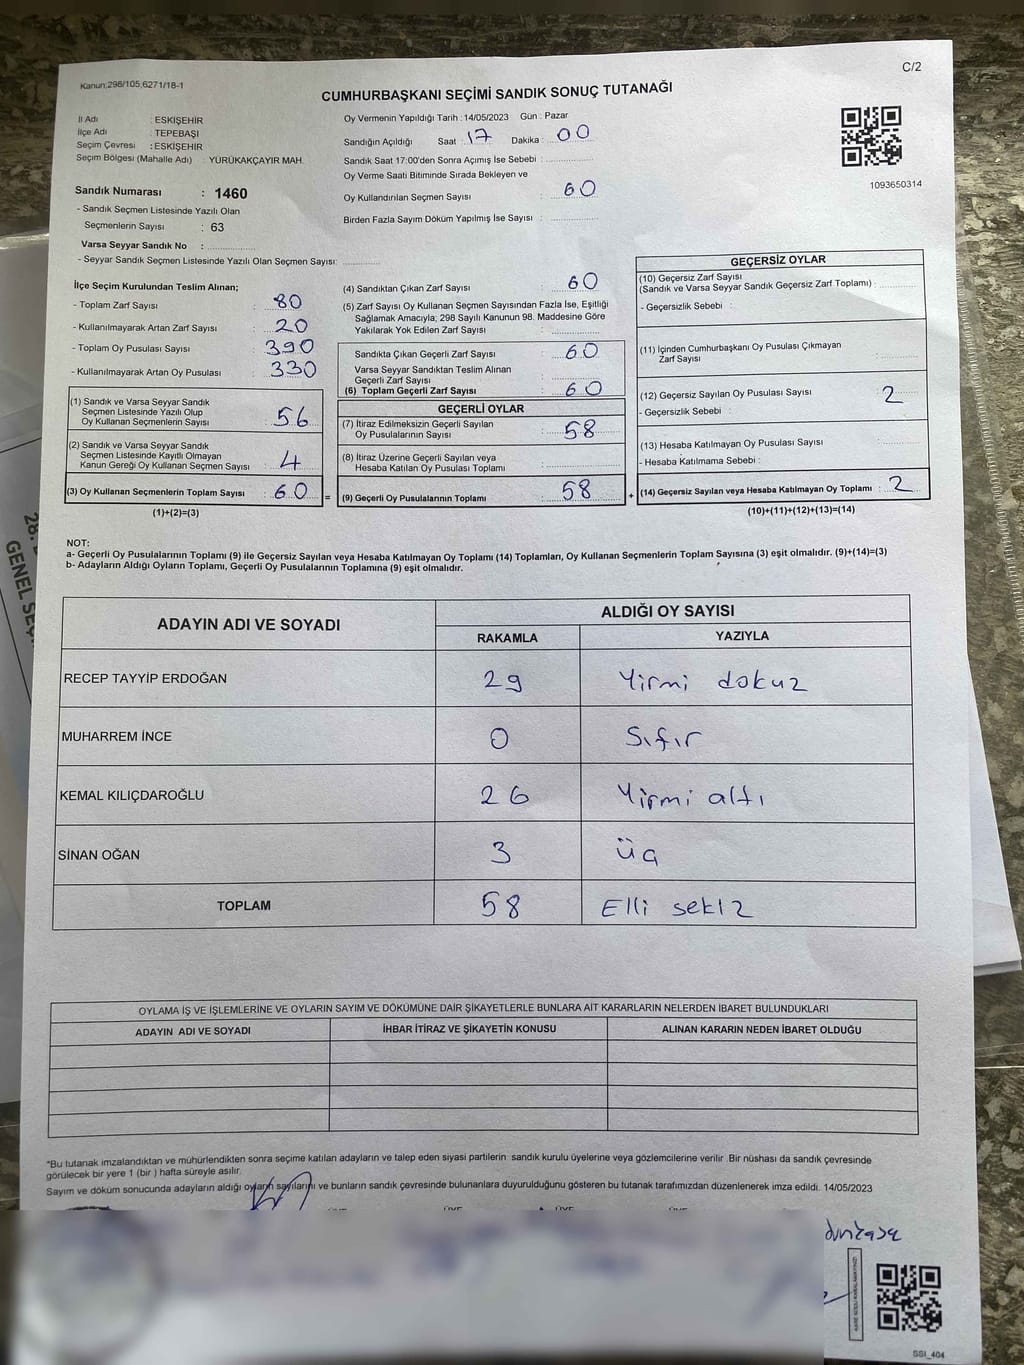 C/2
Kanun:298/105,6271/18-1
CUMHURBAŞKANI SEÇİMİ SANDIK SONUÇ TUTANAĞI
İl Adı : ESKİŞEHİR
İlçe Adı : TEPEBAŞI
Seçim Çevresi : ESKİŞEHİR
Seçim Bölgesi (Mahalle Adı) : YÜRÜKAKÇAYIR MAH.
Sandık Numarası : 1460
- Sandık Seçmen Listesinde Yazılı Olan
Seçmenlerin Sayısı : 63
Varsa Seyyar Sandık No :
- Seyyar Sandık Seçmen Listesinde Yazılı Olan Seçmen Sayısı:
Oy Vermenin Yapıldığı Tarih : 14/05/2023 Gün : Pazar
Sandığın Açıldığı Saat : 17 Dakika : 00
Sandık Saat 17:00'den Sonra Açımış İse Sebebi :
Oy Verme Saati Bitiminde Sırada Bekleyen ve
Oy Kullandırılan Seçmen Sayısı : 60
Birden Fazla Sayım Döküm Yapılmış İse Sayısı :
1093650314
İlçe Seçim Kurulundan Teslim Alınan;
- Toplam Zarf Sayısı : 80
- Kullanılmayarak Artan Zarf Sayısı : 20
- Toplam Oy Pusulası Sayısı : 390
- Kullanılmayarak Artan Oy Pusulası : 330
(1) Sandık ve Varsa Seyyar Sandık
Seçmen Listesinde Yazılı Olup
Oy Kullanan Seçmenlerin Sayısı : 56
(2) Sandık ve Varsa Seyyar Sandık
Seçmen Listesinde Kayıtlı Olmayan
Kanun Gereği Oy Kullanan Seçmen Sayısı : 4
(3) Oy Kullanan Seçmenlerin Toplam Sayısı : 60 =
(1)+(2)=(3)
(4) Sandıktan Çıkan Zarf Sayısı : 60
(5) Zarf Sayısı Oy Kullanan Seçmen Sayısından Fazla İse, Eşitliği
Sağlamak Amacıyla; 298 Sayılı Kanunun 98. Maddesine Göre
Yakılarak Yok Edilen Zarf Sayısı :
Sandıkta Çıkan Geçerli Zarf Sayısı : 60
Varsa Seyyar Sandıktan Teslim Alınan
Geçerli Zarf Sayısı :
(6) Toplam Geçerli Zarf Sayısı : 60
GEÇERLİ OYLAR
(7) İtiraz Edilmeksizin Geçerli Sayılan
Oy Pusulalarının Sayısı : 58
(8) İtiraz Üzerine Geçerli Sayılan veya
Hesaba Katılan Oy Pusulası Toplamı :
(9) Geçerli Oy Pusulalarının Toplamı : 58 +
GEÇERSİZ OYLAR
(10) Geçersiz Zarf Sayısı
(Sandık ve Varsa Seyyar Sandık Geçersiz Zarf Toplamı) :
- Geçersizlik Sebebi :
(11) İçinden Cumhurbaşkanı Oy Pusulası Çıkmayan
Zarf Sayısı :
(12) Geçersiz Sayılan Oy Pusulası Sayısı : 2
- Geçersizlik Sebebi :
(13) Hesaba Katılmayan Oy Pusulası Sayısı :
- Hesaba Katılmama Sebebi :
(14) Geçersiz Sayılan veya Hesaba Katılmayan Oy Toplamı : 2
(10)+(11)+(12)+(13)=(14)
NOT:
a- Geçerli Oy Pusulalarının Toplamı (9) ile Geçersiz Sayılan veya Hesaba Katılmayan Oy Toplamı (14) Toplamları, Oy Kullanan Seçmenlerin Toplam Sayısına (3) eşit olmalıdır. (9)+(14)=(3)
b- Adayların Aldığı Oyların Toplamı, Geçerli Oy Pusulalarının Toplamına (9) eşit olmalıdır.
ADAYIN ADI VE SOYADI ALDIĞI OY SAYISI
RAKAMLA YAZIYLA
RECEP TAYYİP ERDOĞAN 29 Yirmi dokuz
MUHARREM İNCE 0 Sıfır
KEMAL KILIÇDAROĞLU 26 Yirmi altı
SİNAN OĞAN 3 Üç
TOPLAM 58 Elli sekiz
OYLAMA İŞ VE İŞLEMLERİNE VE OYLARIN SAYIM VE DÖKÜMÜNE DAİR ŞİKAYETLERLE BUNLARA AİT KARARLARIN NELERDEN İBARET BULUNDUKLARI
ADAYIN ADI VE SOYADI İHBAR İTİRAZ VE ŞİKAYETİN KONUSU ALINAN KARARIN NEDEN İBARET OLDUĞU
*Bu tutanak imzalandıktan ve mühürlendikten sonra seçime katılan adayların ve talep eden siyasi partilerin sandık kurulu üyelerine veya gözlemcilerine verilir .Bir nüshası da sandık çevresinde
görülecek bir yere 1 (bir ) hafta süreyle asılır.
Sayım ve döküm sonucunda adayların aldığı oyların sayılarını ve bunların sandık çevresinde bulunanlara duyurulduğunu gösteren bu tutanak tarafımızdan düzenlenerek imza edildi. 14/05/2023
SSI_404
28.
GENEL SEÇ